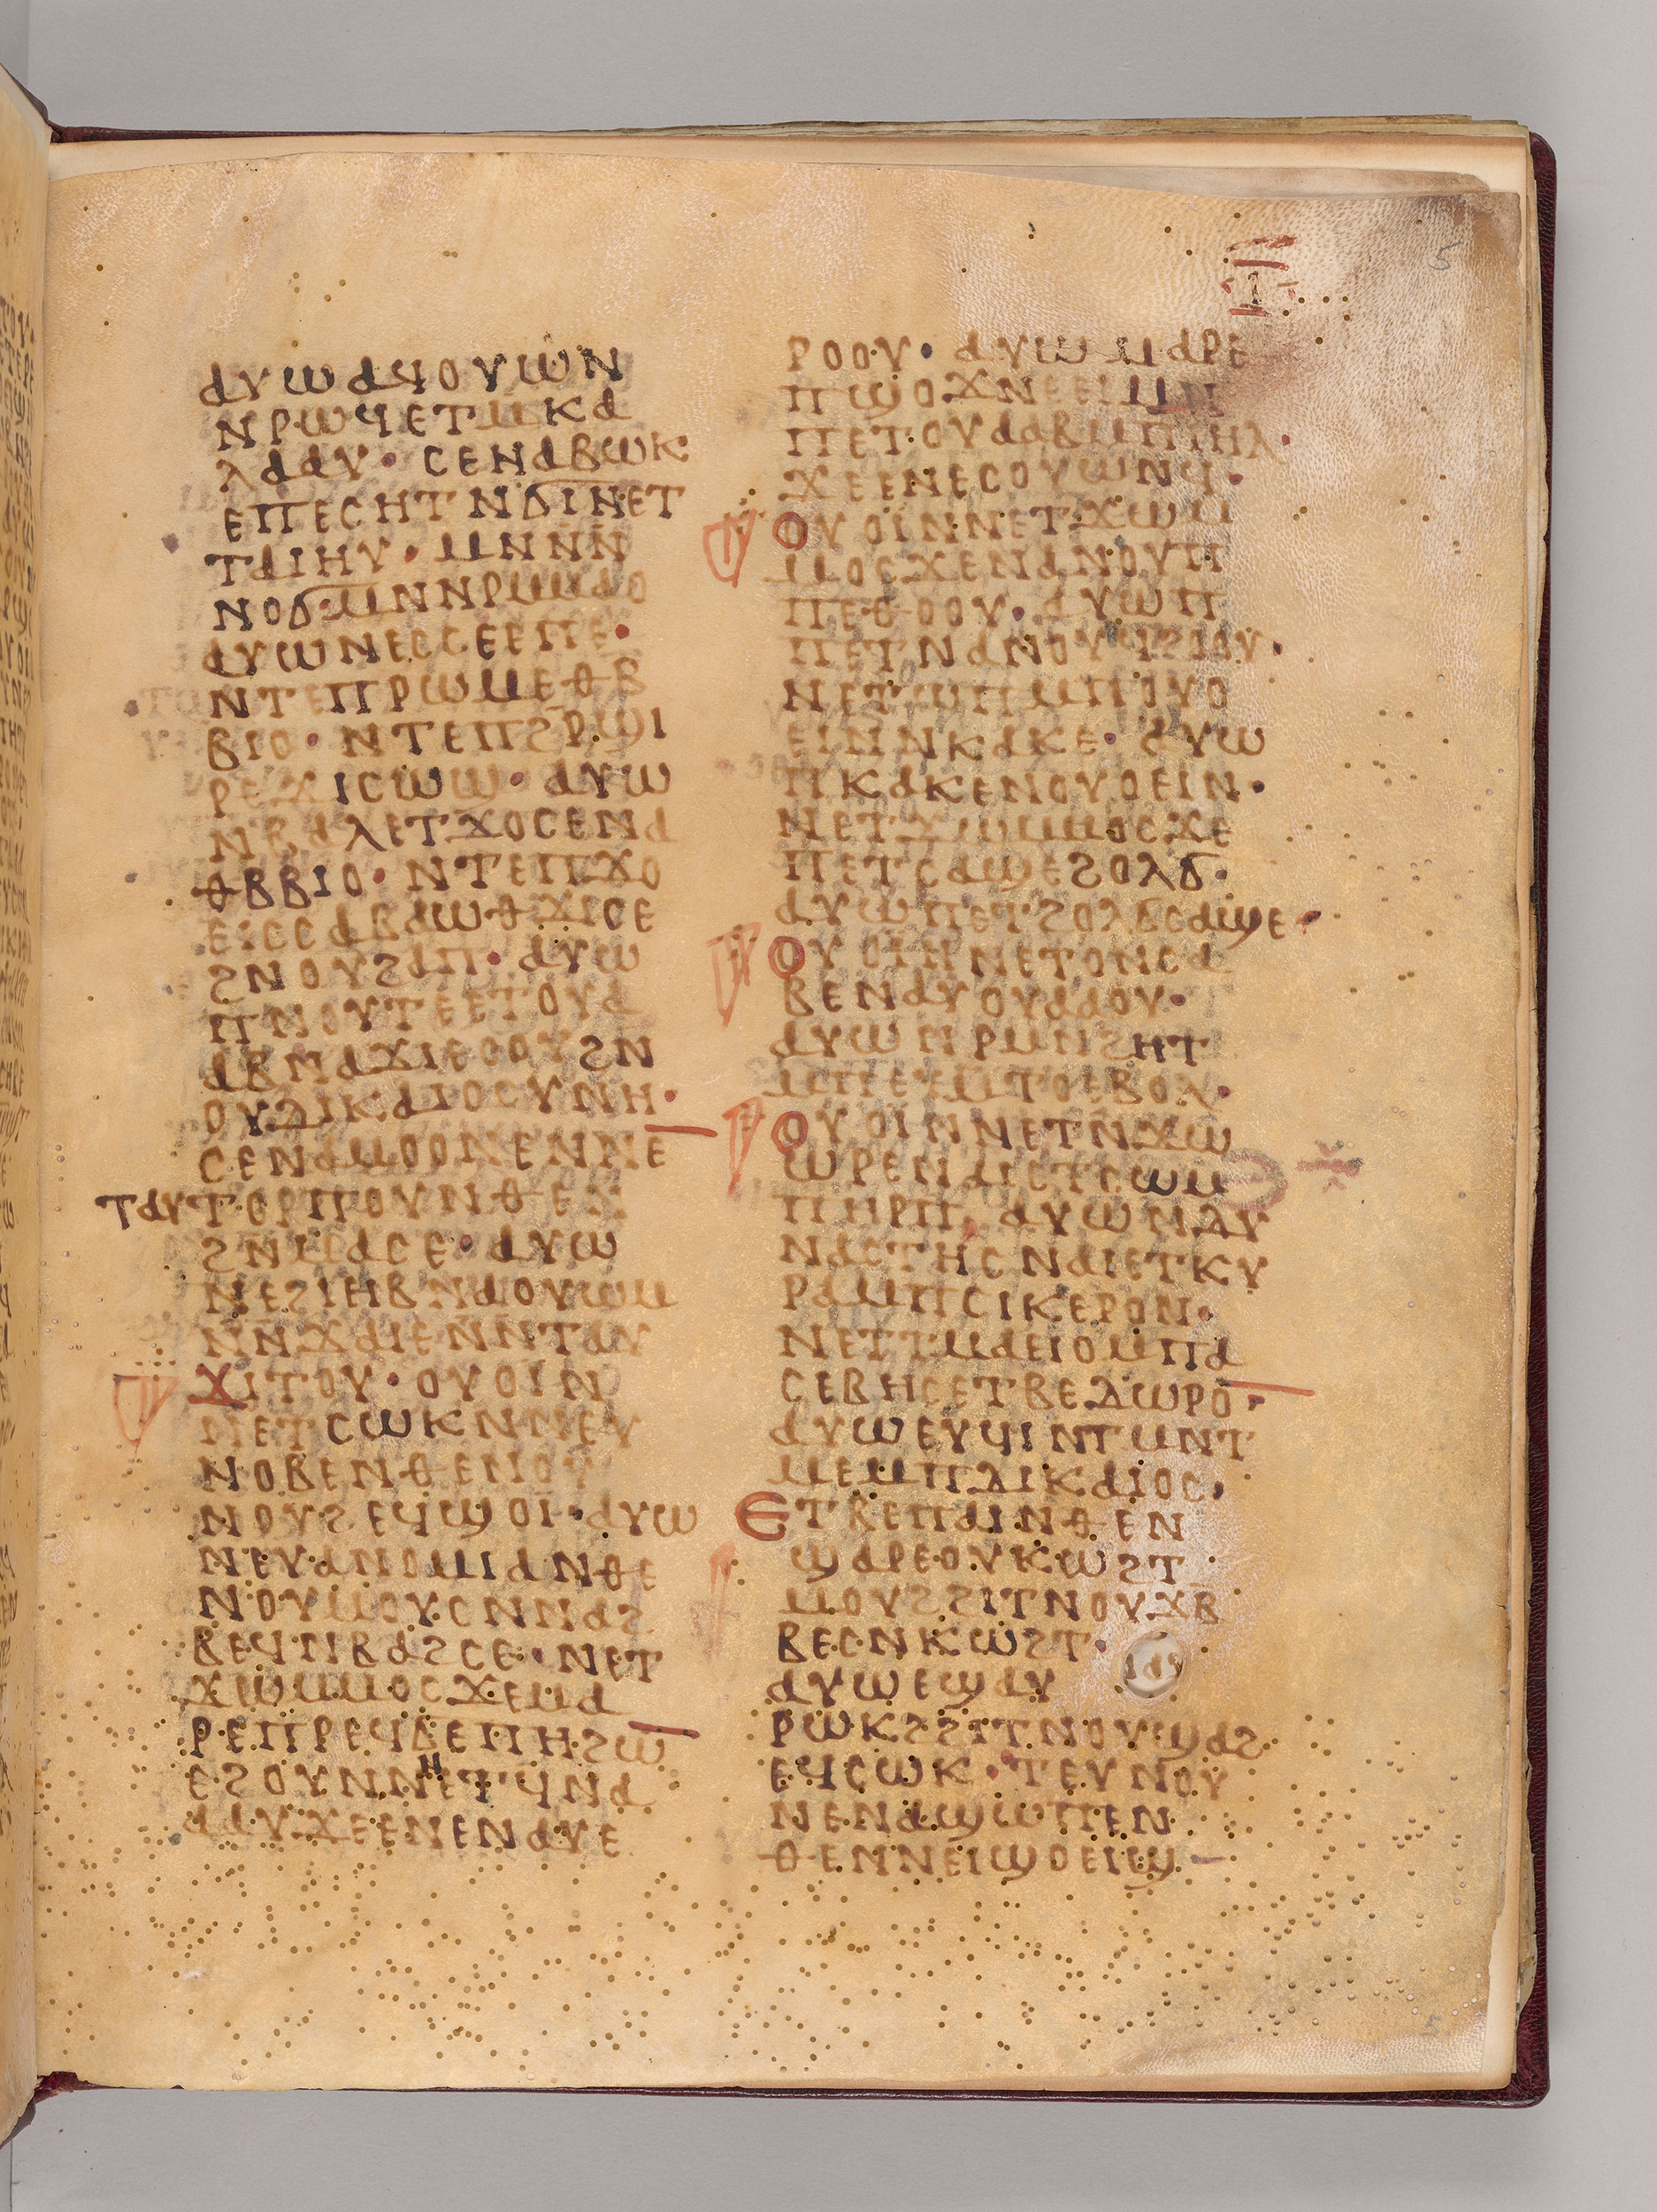 ⲓ
5
ⲁⲩⲱⲁϥⲟⲩⲱⲛ
ⲛⲣⲱϥⲉⲧⲙⲕⲁ
ⲗⲁⲁⲩ· ⲥⲉⲛⲁⲃⲱⲕ
ⲉⲡⲉⲥⲏⲧⲛϭⲓⲛⲉⲧ
ⲧⲁⲓⲏⲩ· ⲙⲛⲛ̄ⲛ̄
ⲛⲟϭ·ⲙⲛⲛⲣⲙⲙⲁⲟ
ⲁⲩⲱⲛⲉⲥⲥⲉⲉⲡⲉ·
ⲛⲧⲉⲡⲣⲱⲙⲉⲑⲃ
ⲃⲓⲟ· ⲛⲧⲉⲡϩⲣϣⲓ
ⲣⲉϫⲓⲥⲱϣ· ⲁⲩⲱ
ⲛⲃⲁⲗⲉⲧϫⲟⲥⲉⲛⲁ
ⲑⲃⲃⲓⲟ· ⲛⲧⲉⲡϫⲟ
ⲉⲓⲥⲥⲁⲃⲁⲱⲑϫⲓⲥⲉ
ϩⲛⲟⲩϩⲁⲡ· ⲁⲩⲱ
ⲡⲛⲟⲩⲧⲉⲉⲧⲟⲩⲁ
ⲁⲃⲛⲁϫⲓⲉⲟⲟⲩϩⲛ
ⲟⲩⲇⲓⲕⲁⲓⲟⲥⲩⲛⲏ·
ⲥⲉⲛⲁⲙⲟⲟⲛⲉⲛⲛⲉ
ⲧⲁⲩⲧⲟⲣⲡⲟⲩⲛⲑⲉⲛ
ϩⲛⲙⲁⲥⲉ· ⲁⲩⲱ
ⲛⲉϩⲓⲉⲓⲃⲛⲁⲟⲩⲱⲙ
ⲛ̄ⲛϫⲁⲓⲉⲛⲛⲧⲁⲩ
ϫⲓⲧⲟⲩ· ⲟⲩⲟⲓⲛ
ⲛⲉⲧⲥⲱⲕⲛⲛⲉⲩ
ⲛⲟⲃⲉⲛⲑⲉⲛⲟⲩ
ⲛⲟⲩϩⲉϥϣⲟⲓ·ⲁⲩⲱ
ⲛⲉⲩⲁⲛⲟⲙⲓⲁⲛⲑⲉ
ⲛⲟⲩⲙⲟⲩⲥⲛⲛⲁϩ
ⲃⲉϥⲛⲃⲁϩⲥⲉ·ⲛⲉⲧ
ϫⲱⲙⲙⲟⲥϫⲉⲙⲁ
ⲣⲉⲡⲣⲉϥϭⲉⲡⲏϩⲱ
ⲉϩⲟⲩⲛⲛⲏⲉⲧϥⲛⲁ
ⲁⲁⲩϫⲉⲉⲛⲉⲛⲁⲩⲉ
ⲣⲟⲟⲩ· ⲁⲩⲱⲙⲁⲣⲉ
ⲡϣⲟϫⲛⲉⲉⲓⲙⲡ
ⲡⲉⲧⲟⲩⲁⲁⲃⲙⲡⲓⲏⲗ·
ϫⲉⲉⲛⲉⲥⲟⲩⲱⲛϥ·
ⲟⲩⲟⲓⲛⲛⲉⲧϫⲱⲙ
ⲙⲟⲥϫⲉⲛⲁⲛⲟⲩⲡ
ⲡⲉⲑⲟⲟⲩ· ⲁⲩⲱⲡ
ⲡⲉⲧⲛⲁⲛⲟⲩϥϩⲟⲟⲩ·
ⲛⲉⲧⲱⲡⲙⲡⲟⲩⲟ
ⲉⲓⲛⲛⲕⲁⲕⲉ· ⲁⲩⲱ
ⲡⲕⲁⲕⲉⲛⲟⲩⲟⲉⲓⲛ·
ⲛⲉⲧϫⲱⲙⲙⲟⲥϫⲉ
ⲡⲉⲧⲥⲁϣⲉϩⲟⲗϭ·
ⲁⲩⲱⲡⲉⲧϩⲟⲗϭⲥⲁϣⲉ·
ⲟⲩⲟⲓⲛⲛⲉⲧⲟⲛⲥⲁ
ⲃⲉⲛⲁⲩⲟⲩⲁⲁⲟⲩ·
ⲁⲩⲱⲛⲣⲙⲛϩⲏⲧ
ⲙⲡⲉⲩⲙⲧⲟⲉⲃⲟⲗ·
ⲟⲩⲟⲓⲛⲛⲉⲧⲛϫⲱ
ⲱⲣⲉⲛⲁⲓⲉⲧⲥⲱⲙ
ⲡⲏⲣⲡ· ⲁⲩⲱⲛⲇⲩ
ⲛⲁⲥⲧⲏⲥⲛⲁⲓⲉⲧⲕⲩ
ⲣⲁⲙⲡⲥⲓⲕⲉⲣⲟⲛ·
ⲛⲉⲧⲧⲙⲁⲉⲓⲟⲙⲡⲁ
ⲥⲉⲃⲏⲥⲉⲧⲃⲉⲇⲱⲣⲟ̄·
ⲁⲩⲱⲉⲩϥⲓⲛⲧⲙⲛⲧ
ⲙⲉⲙⲡⲇⲓⲕⲁⲓⲟⲥ·
ⲉⲧⲃⲉⲡⲁⲓⲛⲑⲉⲛ
ϣⲁⲣⲉⲟⲩⲕⲱϩⲧ
ⲙⲟⲩϩϩⲓⲧⲛⲟⲩϫⲃ
ⲃⲉⲥⲛⲕⲱϩⲧ·
ⲁⲩⲱⲉϣⲁⲩ
ⲣⲱⲕϩϩⲓⲧⲛⲟⲩϣⲁϩ
ⲉϥⲥⲱⲕ· ⲧⲉⲩⲛⲟⲩ
ⲛⲉⲛⲁϣⲱⲡⲉⲛ
ⲑⲉⲛⲛⲉⲓϣⲟⲉⲓϣ